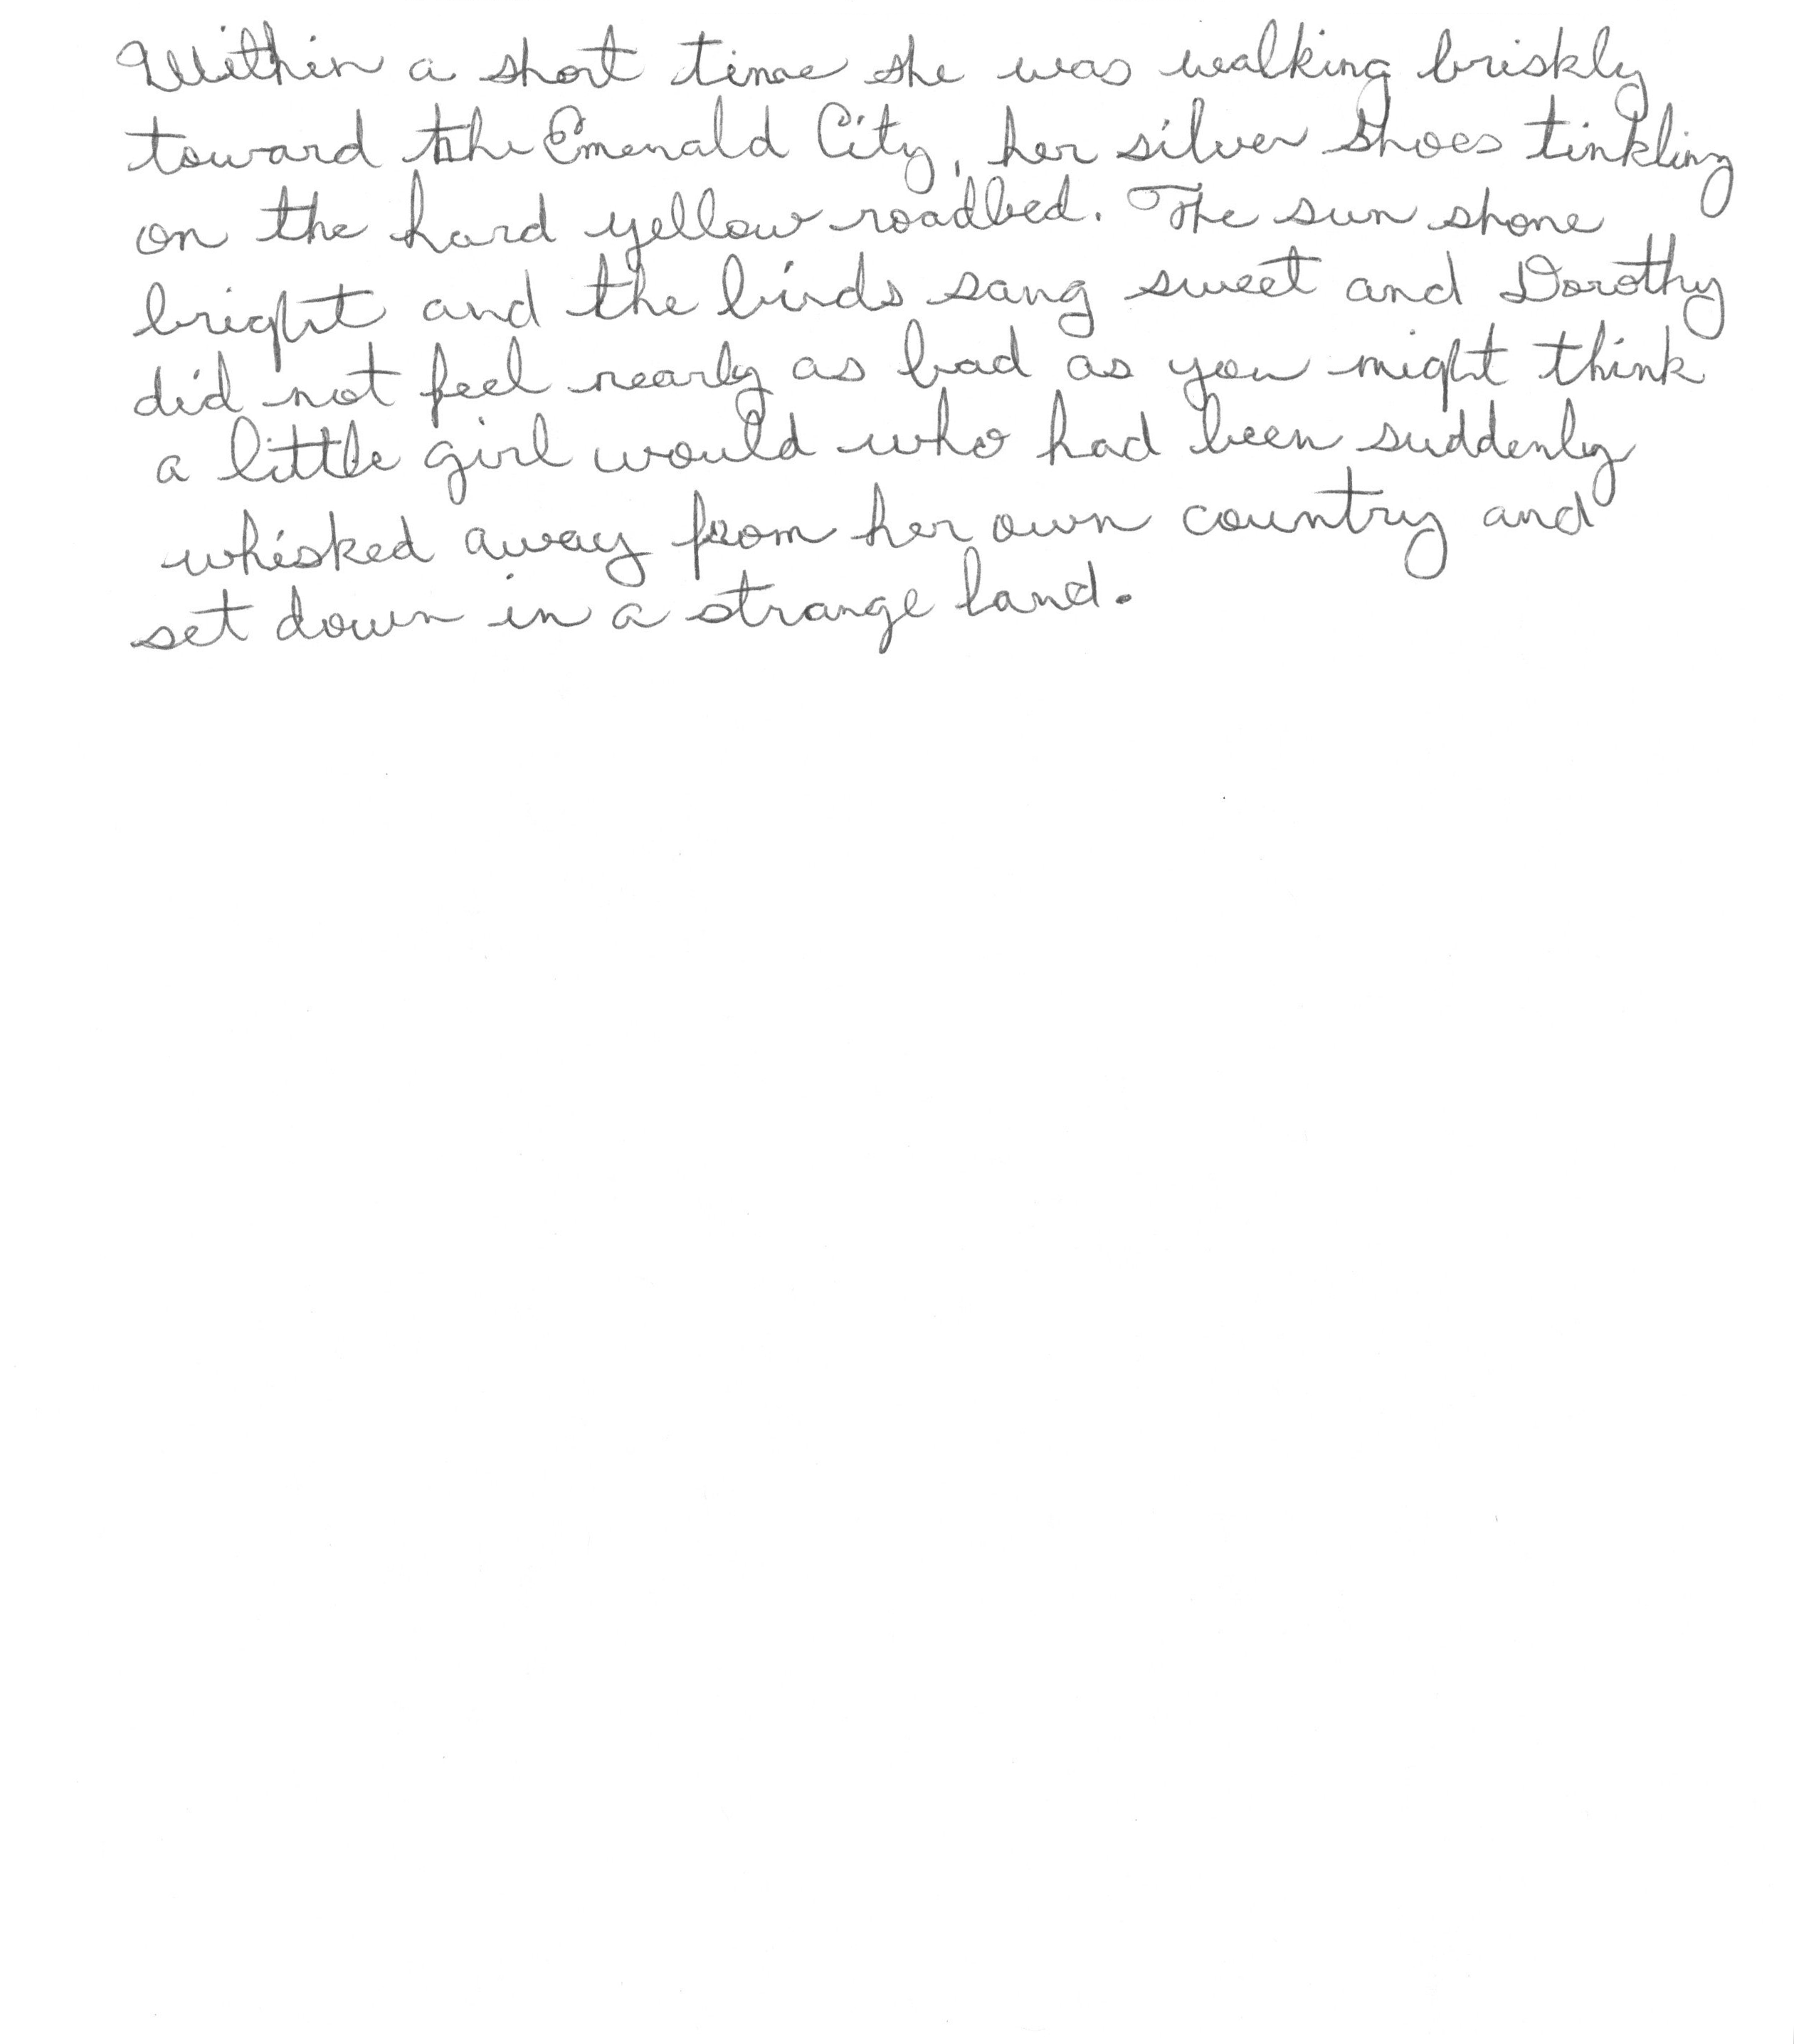 Within a short time she was walking briskly
toward the Emerald City, her silver shoes tinkling
on the hard yellow roadbed. The sun shone
bright and the birds sang sweet and Dorothy
did not feel nearly as bad as you might think
a little girl would who had been suddenly
whisked away from her own country and
set down in a strange land.